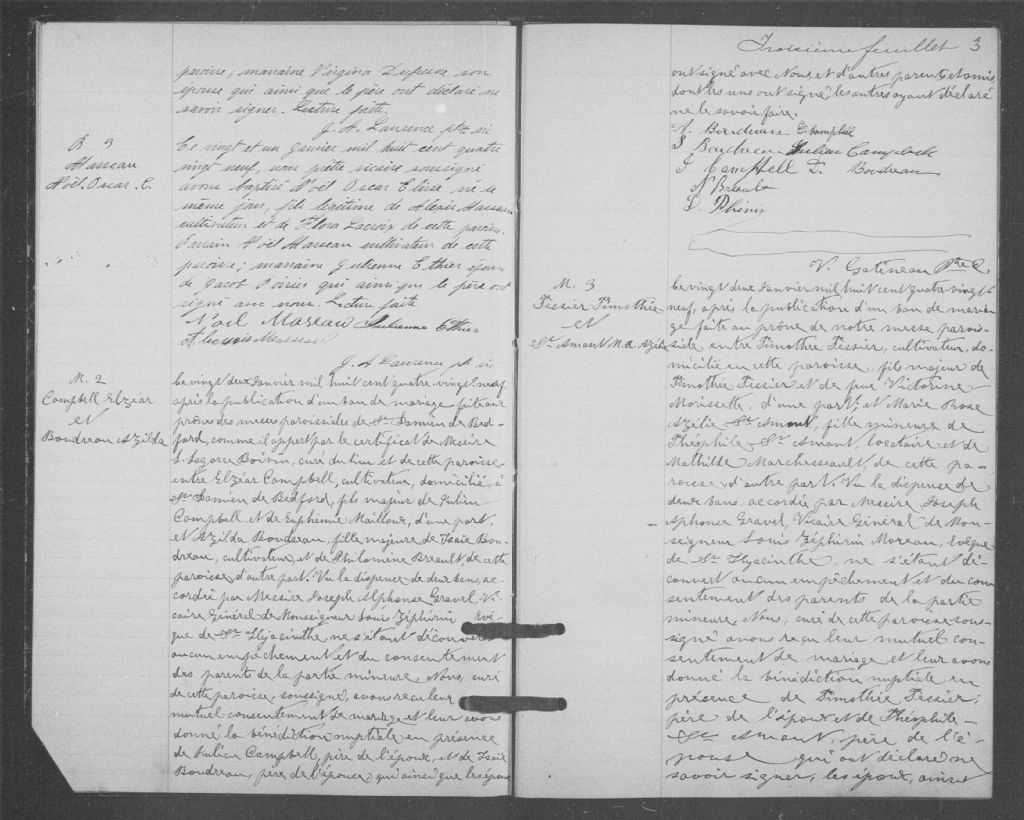 paroisse; marraine Virginia Dufresne son
épouse qui ainsi que le père ont déclaré ne
savoir signer. Lecture faite.
J. A. Laurence ptre vic
B 3
Masseau
Noël. Oscar. E.
Le vingt et un janvier mil huit cent quatre
vingt neuf, nous prêtre vicaire soussigné
avons baptisé Noël Oscar Elisée né le
même jour, fils légitime de Alexis Masseau
cultivateur et de Flora Lacroix de cette paroisse.
Parrain Noël Masseau cultivateur de cette
paroisse; marraine Julienne Ethier épouse
de Jacob Poirier qui ainsi que le père ont
signé avec nous. Lecture faite
Noël Maseau Julienne Ethier
Masseau
J. A Laurence ptr vic
M. 2
Campbell Elzéar
et
Boudreau Azilda
Le vingt deux Janvier mil huit cent quatre-vingt neuf,
après la publication d'un ban de mariage faite aux
prônes des messes paroissiales de St. Damien de Bed-
ford, comme il appert par le certificat de Messire
Lazare Boivin, curé du lieu et de cette paroisse,
entre Elzéar Campbell, cultivateur, domicilié à
St. Damien de Bedford, fils majeur de Julien
Campbell et de Euphémie Mailloux, d'une part,
et Azilda Boudreau, fille majeure de Isaïe Bou-
dreau, cultivateur, et de Philomène Breault, de cette
paroisse, d'autre part. Vu la dispense de deux bans, ac-
cordée par Messire Joseph Alphonse Gravel, Vi-
caire Général de Monseigneur Louis Zéphirin Evê-
que de St. Hyacinthe, ne s'étant découvert
aucun empêchement et du consentement
des parents de la partie mineure, Nous, curé
de cette paroisse, soussigné, avons reçu leur
mutuel consentement de mariage et leur avons
donné la bénédiction nuptiale en présence
de Julien Campbell, père de l'époux, et de Isaïe
Boudreau, père de l'épouse, qui ainsi que les époux
Troisième feuillet 3
ont signé avec Nous, et d'autres parents et amis
dont les uns ont signé, les autres ayant déclaré
ne le savoir faire.
A. Boudreau E. Campbell
I Boudreau Julien Campbell
J Campbell D. Boudreau
N Breault
L. Phénix
V. Gatineau Ptre C.
M. 3
Tessier Timothée
et
St. Amant M. R. Azilie
Le vingt deux Janvier mil huit cent quatre-vingt-
neuf, après la publication d'un ban de maria-
ge faite au prône de notre messe parois-
siale, entre Timothée Tessier, cultivateur, do-
micilié en cette paroisse, fils majeur de
Timothée Tessier et de feue Victorine
Morissette, d'une part; et Marie Rose
Azilie St. Amant, fille mineure de
Théophile St. Amant, locataire et de
Mathilde Marchesseault, de cette pa-
roisse d'autre part. Vu la dispense de
deux bans, accordée par Messire Joseph
Alphonse Gravel, Vicaire Général de Mon-
seigneur Louis Zéphirin Moreau, Evêque
de St. Hyacinthe, ne s'étant dé-
couvert aucun empêchement et du con-
sentement des parents de la partie
mineure, Nous, curé de cette paroisse sous-
signé avons reçu leur mutuel con-
sentement de mariage et leur avons
donné la bénédiction nuptiale en
présence de Timothée Tessier,
père de l'époux et de Théophile
St. Amant, père de l'é-
pouse qui ont déclaré ne
savoir signer, les époux, ainsi